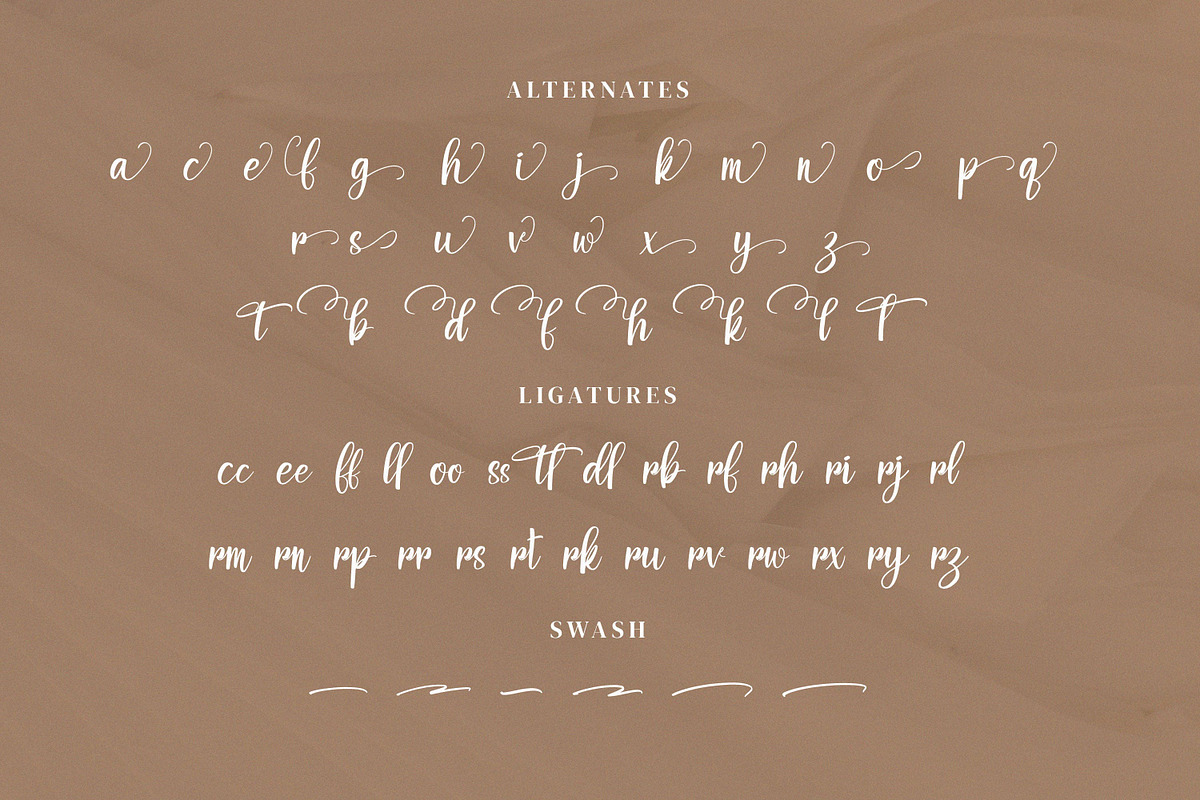 ALTERNATES
a c e f g h i j k m n o p q
r s u v w x y z
t b d f h k l t
LIGATURES
cc ee ff ll oo ss tt dl rb rf rh ri rj rl
rm rn rp rr rs rt rk ru rv rw rx ry rz
SWASH